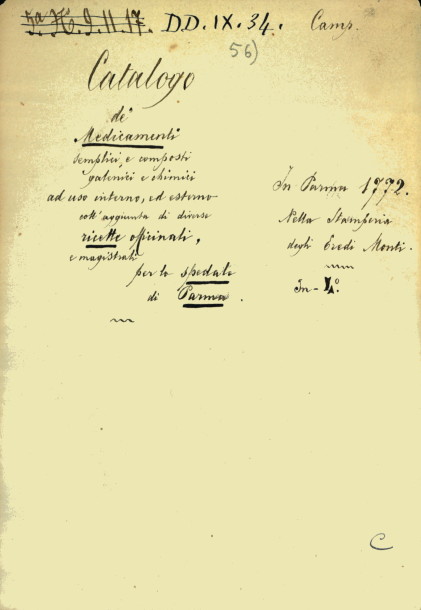 5a H. 9. II. 17. D.D. IX. 34. Camp.
56)
Catalogo
de'
Medicamenti
semplici, e composti
galenici e chimici
ad uso interno, ed esterno
coll' aggiunta di diverse
ricette officinali,
e magistrali
per lo spedale
di Parma.
In Parma 1772.
Nella Stamperia
degli Eredi Monti.
In-4°.
C